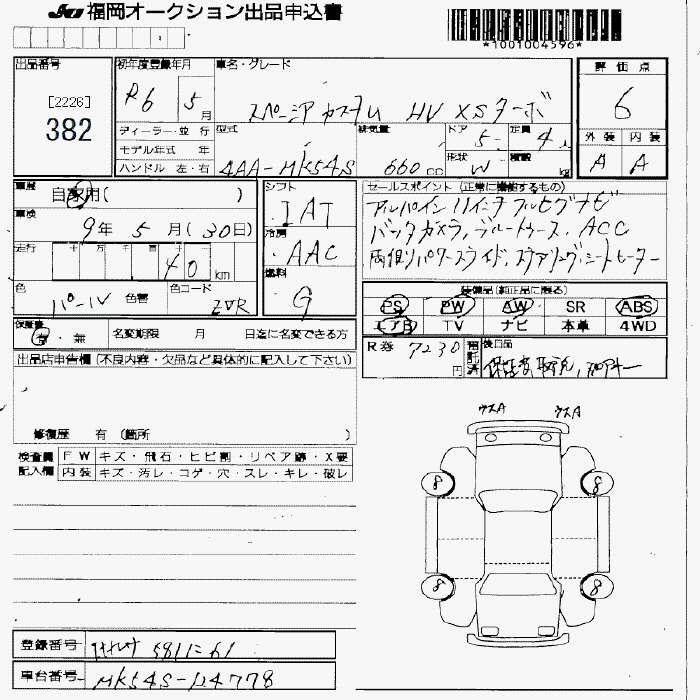 JU 福岡オークション出品申込書
*1001004596*
出品番号
[2226]
382
初年度登録年月
R6 5月
車名・グレード
スペーシア カスタム HV XSターボ
評価点
6
外装 内装
A A
ディーラー・並行
モデル年式 年
ハンドル 左・右
型式
4AA-MK54S
排気量
660 cc
ドア
5
形状
W
定員
4人
積載
kg
車歴
自家用( )
車検
9年 5月(30日)
走行
40 km
色
パール
色替
色コード
ZVR
シフト
IAT
冷房
AAC
燃料
G
セールスポイント (正常に機能するもの)
アルパイン 11インチ フルセグナビ
バックカメラ, ブルートゥース. ACC
両側パワースライド, ステアリング, シートヒーター
装備品(純正品に限る)
PS PW AW SR ABS
エアB TV ナビ 本革 4WD
保証書
有・無
名変期限 月 日迄に名変できる方
R券 7230円
預託済
後日品
保証書, 取説,
出品店申告欄(不良内容・欠品など具体的に記入して下さい)
修復歴 有 (箇所 )
検査員記入欄
FW キズ・飛石・ヒビ割・リペア跡・X要
内装 キズ・汚レ・コゲ・穴・スレ・キレ・破レ
ウスA ウスA
8 8
8 8
登録番号
581 に 61
車台番号
MK54S-124778